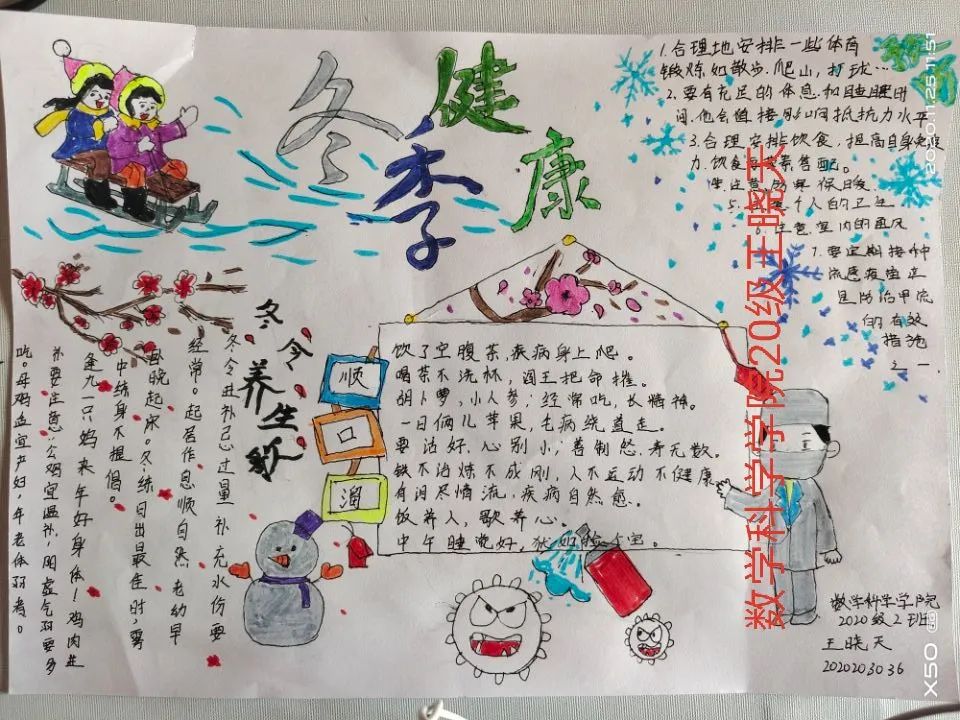 冬季健康
1.合理地安排一些体育
锻炼如散步.爬山,打球…
2.要有充足的休息和睡眠时
间.他会直接影响抵抗力水平
3.合理安排饮食,提高自身免疫
力.饮食
注意防寒保暖
5.个人的卫生
6.注意室内的通风
7.要定期接种
流感疫苗这
是防治甲流
的有效
措施
之一.
冬令养生歌
冬令进补忌过量补充水份要
经常。起居作息顺自然老幼早
睡晚起床。冬练日出最佳时,雾
中练身不提倡。
逢九一只鸡来年好身体!鸡肉进
补要注意:公鸡宜温补,阳虚气弱要多
吃。母鸡适宜产妇,年老体弱者。
顺
口
溜
饮了空腹茶,疾病身上爬。
喝茶不洗杯,阎王把命摧。
胡卜萝,小人参;经常吃,长精神。
一日俩儿苹果,毛病绕着走。
要活好,心别小,善制怒,寿无数。
铁不冶炼不成刚,人不运动不健康
有泪尽情流,疾病自然愈。
饭养人,歌养心。
中午睡觉好,
数学科学学院
2020级2班
王晓天
2020203036
数学科学学院20级王晓天
2020.11.25 11:51
X50